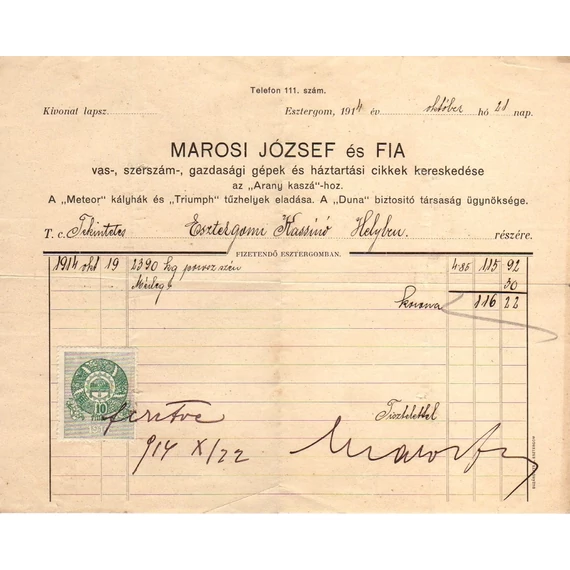 Telefon 111. szám.
Kivonat lapsz. Esztergom, 1914 év október hó 21 nap.
MAROSI JÓZSEF és FIA
vas-, szerszám-, gazdasági gépek és háztartási cikkek kereskedése
az „Arany kaszá“-hoz.
A „Meteor“ kályhák és „Triumph“ tűzhelyek eladása. A „Duna“ biztosító társaság ügynöksége.
T. c. Tekintetes Esztergomi Kassinó Helyben. részére.
FIZETENDŐ ESZTERGOMBAN.
1914 okt 19 2390 kg porosz szén 4.85 115 92
30
korona 116 22
10
Tisztelettel
fizetve
914 X/22